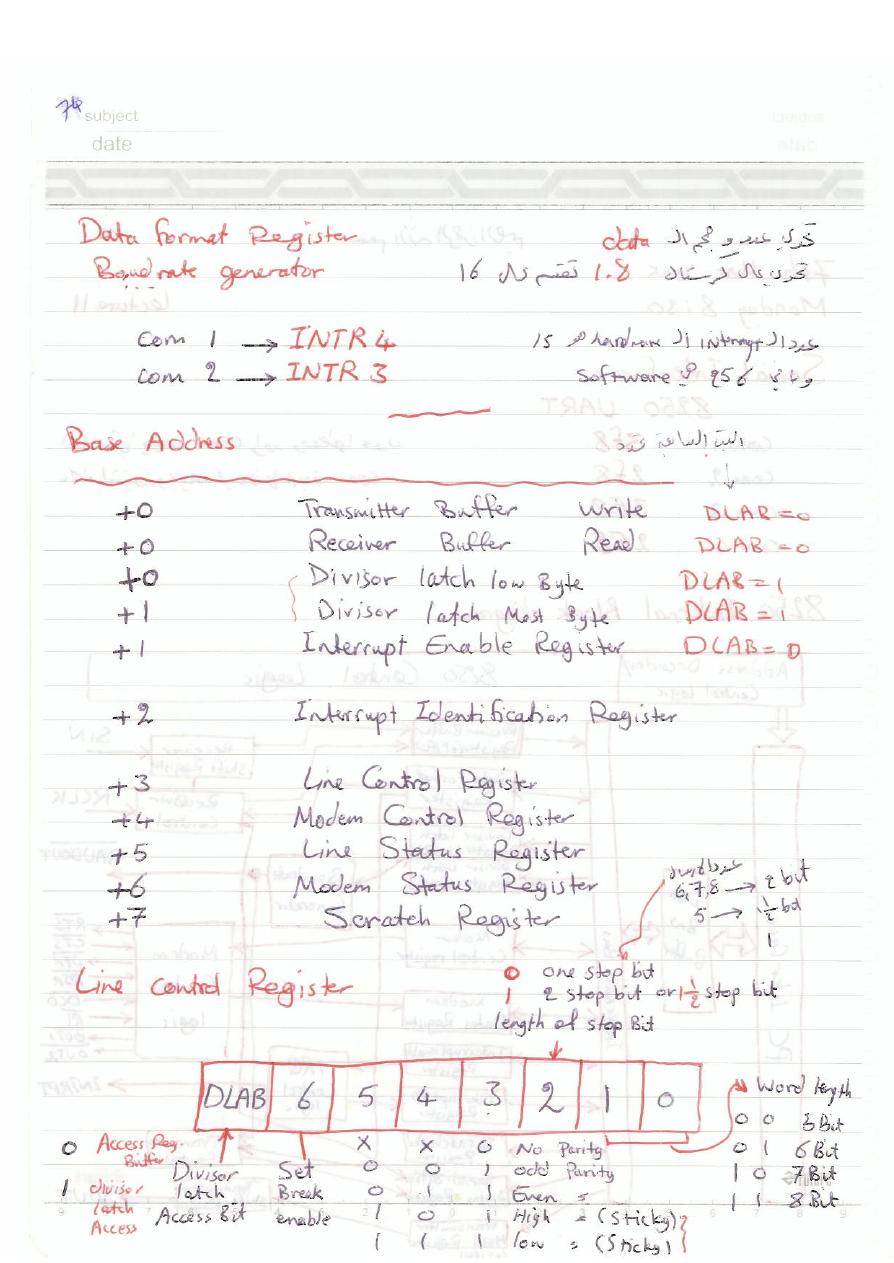 74 subject
date
Data format Register تحدد عدد و حجم الـ data
Baudrate generator 1.8 كرستال تقسم على 16
Com 1 → INTR 4 عدد الـ interrupt الـ hardware هو 15
Com 2 → INTR 3 256 software
Base Address البت السابعة تحدد
+0 Transmitter Buffer Write DLAB = 0
+0 Receiver Buffer Read DLAB = 0
+0 Divisor latch low Byte DLAB = 1
+1 Divisor latch Most Byte DLAB = 1
+1 Interrupt Enable Register DLAB = 0
+2 Interrupt Identification Register
+3 Line Control Register
+4 Modem Control Register
+5 Line Status Register
+6 Modem Status Register
+7 Scratch Register
6,7,8 → 2 bit
5 → 1 1/2 bit
1
Line Control Register
0 one stop bit
1 2 stop bit or 1 1/2 stop bit
length of stop Bit
DLAB 6 5 4 3 2 1 0
Word length
0 0 5 Bit
0 1 6 Bit
1 0 7 Bit
1 1 8 Bit
0 Access Reg. Buffer
1 divisor latch Access
Divisor latch Access Bit
Set Break enable
x x 0 No Parity
0 0 1 odd Parity
0 1 1 Even =
1 0 1 High = (Sticky)
1 1 1 low = (Sticky)